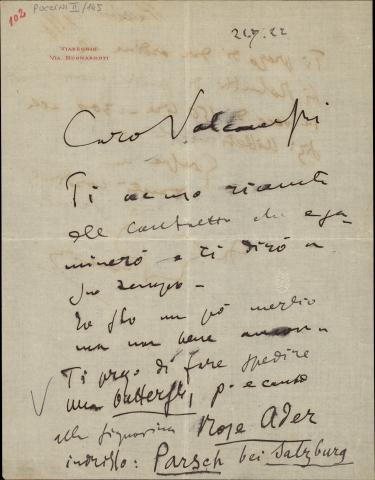 102
PUCCINI II/145
VIAREGGIO
VIA BUONARROTI
22
Caro Valcarenghi
Ti accuso ricevuta
del contratto che esa-
minerò e ti dirò a
suo tempo -
Io sto un pò meglio
ma non bene ancora
Ti prego di fare spedire
una Butterfly, p. e canto
alla signorina Rose Ader
indrizzo: Parsch bei Salzburg